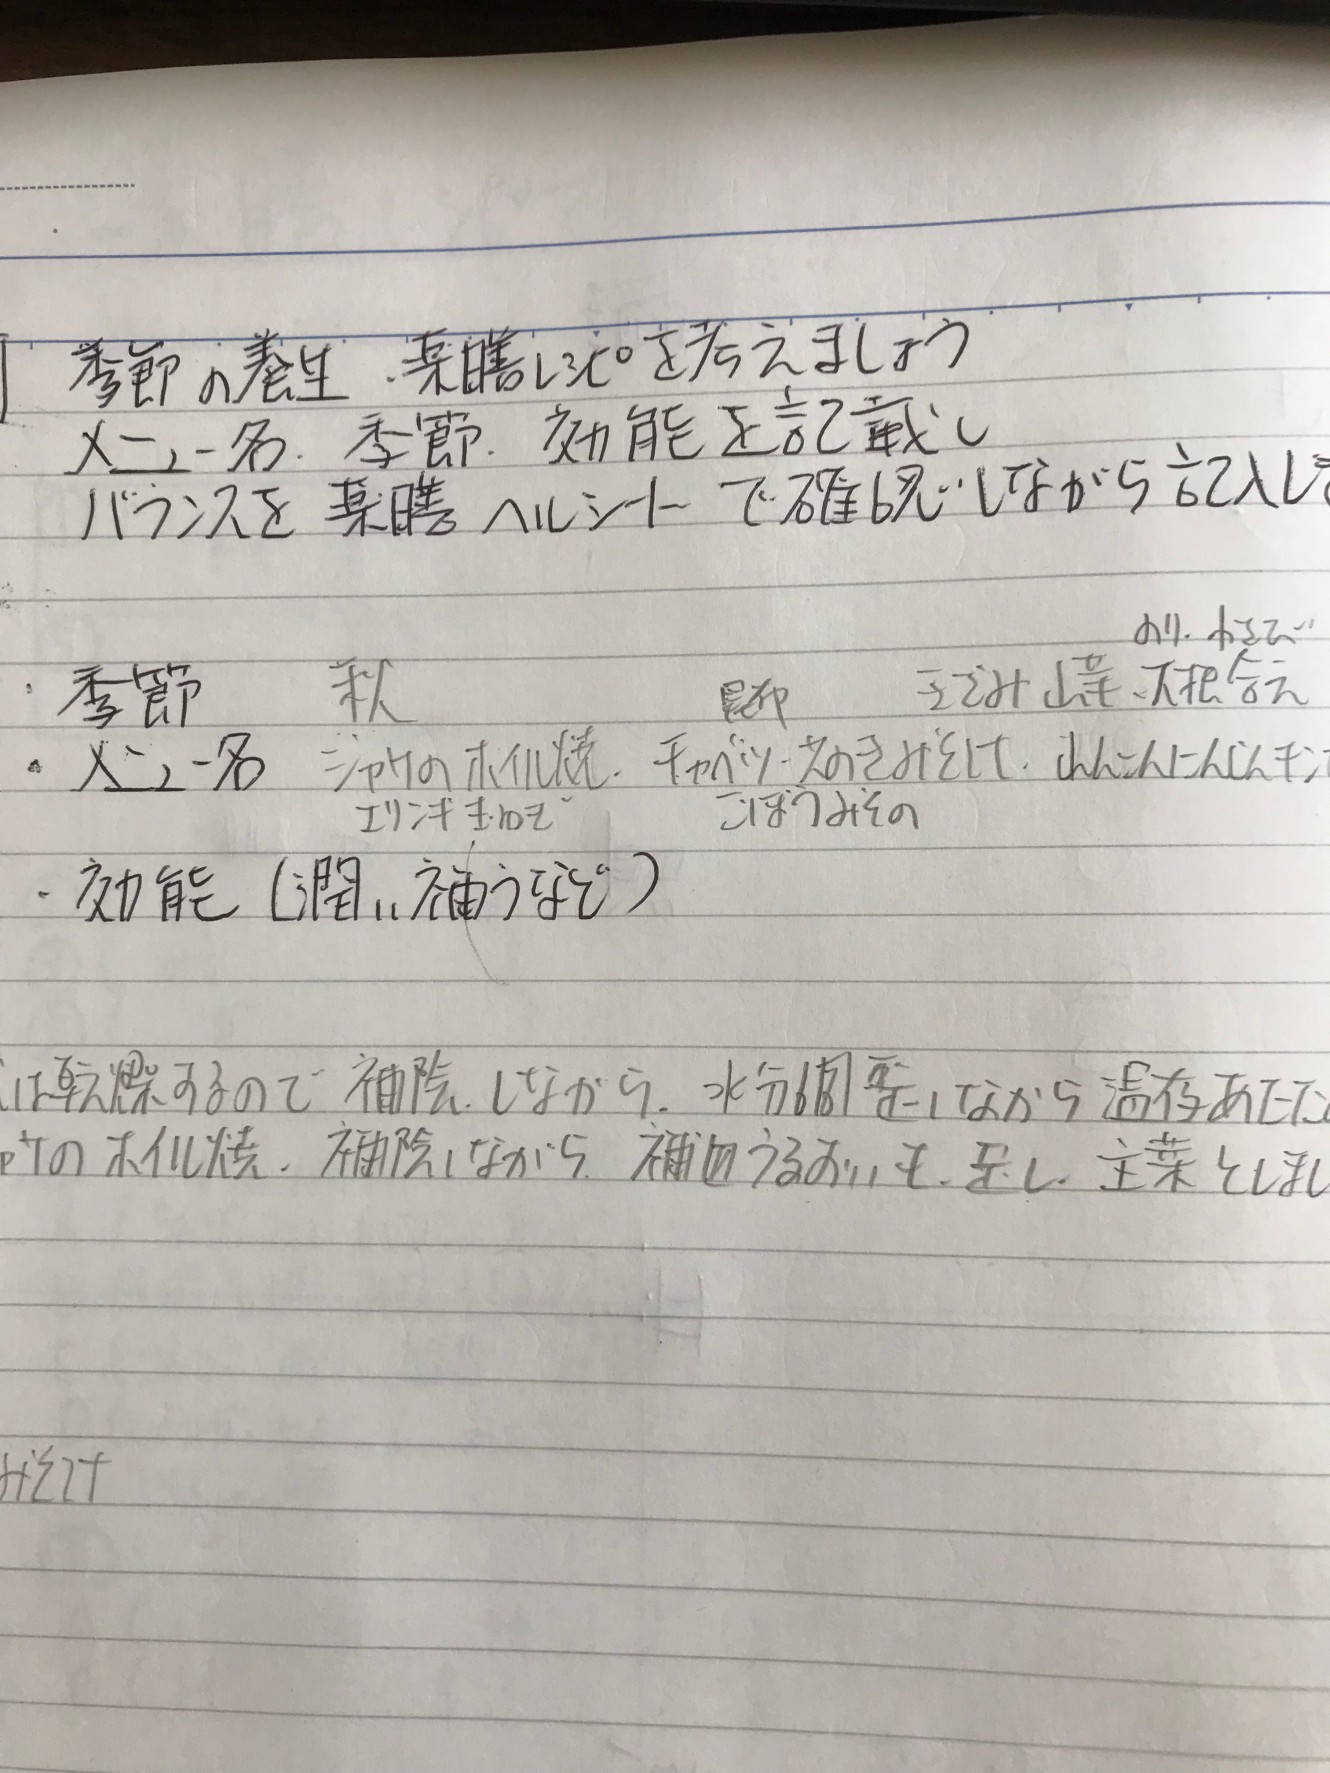 季節の養生 薬膳レシピを考えましょう
メニュー名. 季節. 効能を記載し
バランスを薬膳ヘルシートで確認しながら記入し
のり. わさび
・季節 秋 昆布 山菜、大根合え
・メニュー名 シャケのホイル焼. キャベツ・えのきみそして. れんこんにんじんキン
エリンギ ごぼうみその
・効能(潤い補うなど)
は乾燥するので補陰しながら. 水分調整しながら温存あたた
ケのホイル焼. 補陰しながら 補血うるおいも. 足し. 主菜としまし